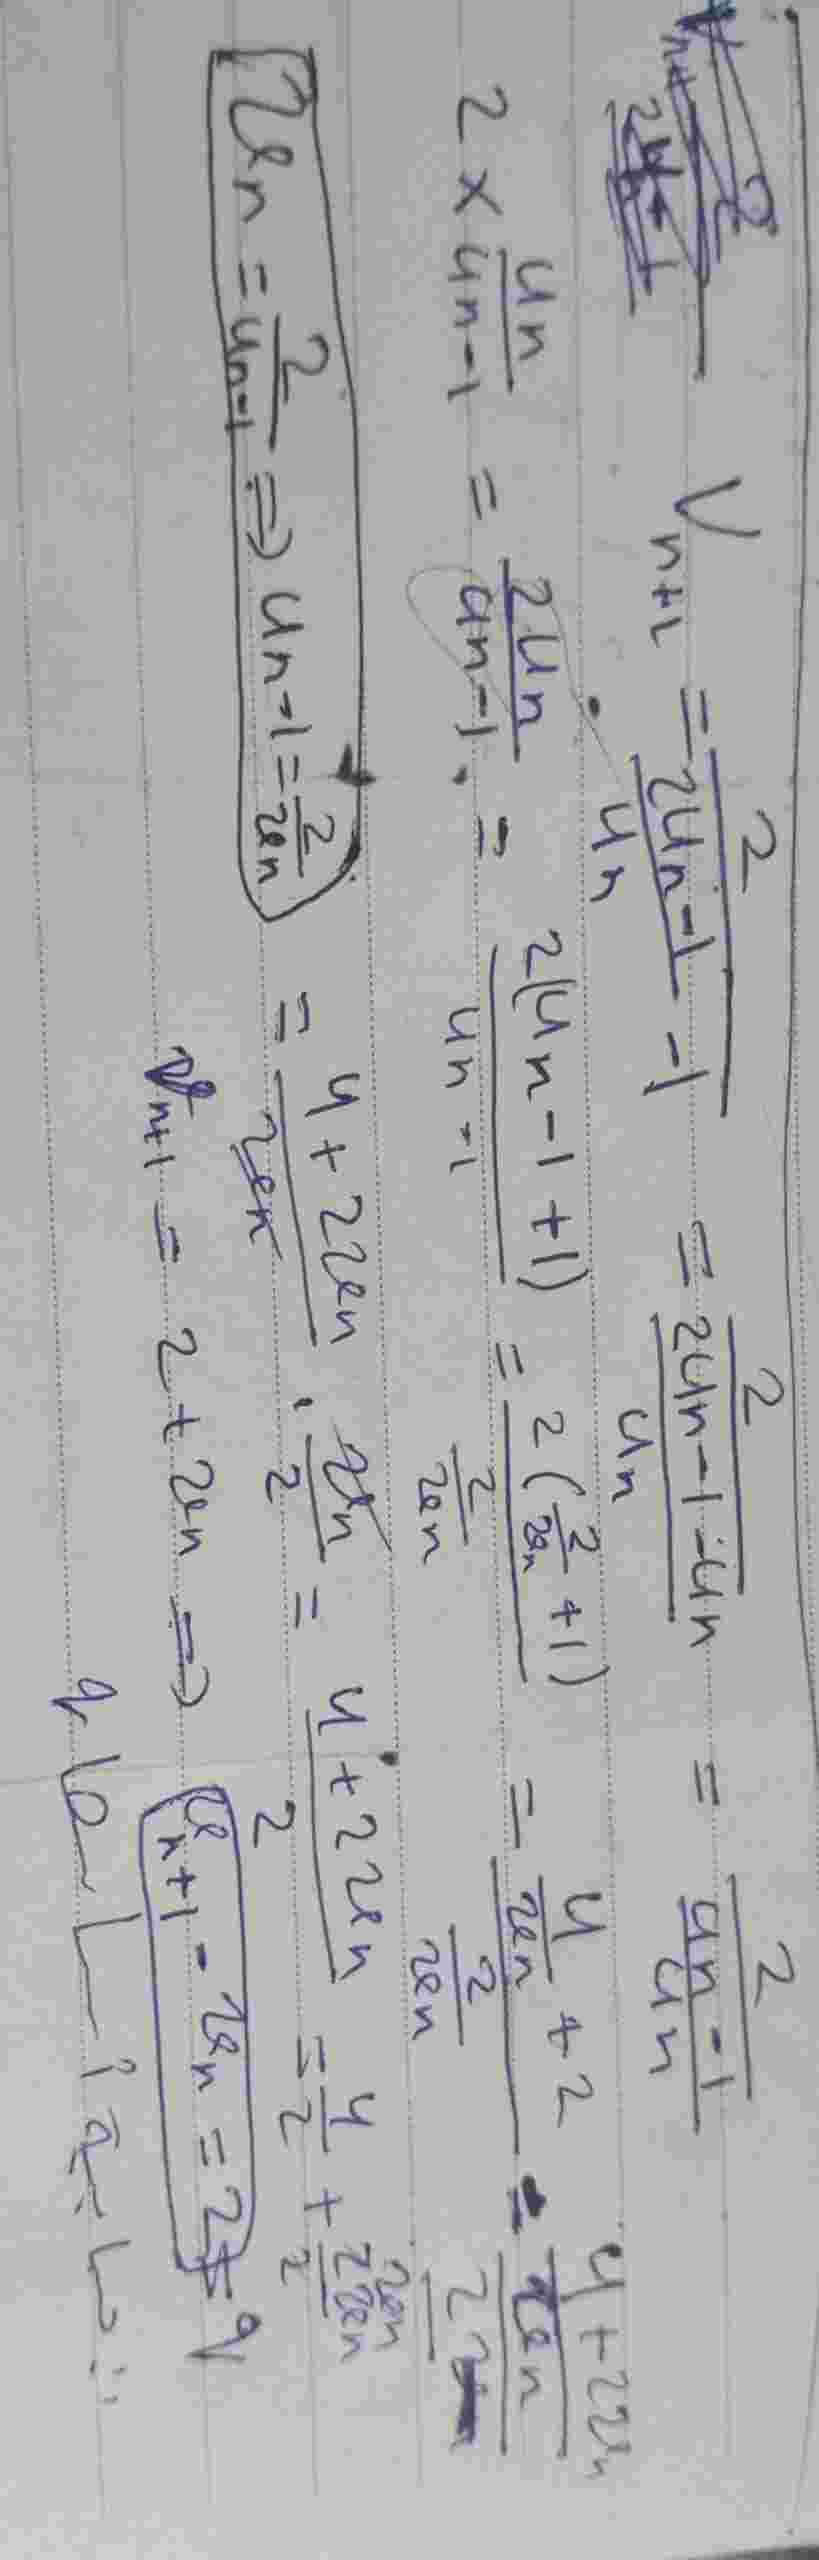 V_{n+1} = \frac{2}{\frac{2u_n-1}{u_n} - 1} = \frac{2}{\frac{2u_n-1-u_n}{u_n}} = \frac{2}{\frac{u_n-1}{u_n}}
2 × \frac{u_n}{u_n-1} = \frac{2u_n}{u_n-1} = \frac{2(u_n-1+1)}{u_n-1} = \frac{2(\frac{2}{v_n}+1)}{\frac{2}{v_n}} = \frac{\frac{4}{v_n}+2}{\frac{2}{v_n}} = \frac{\frac{4+2v_n}{v_n}}{\frac{2}{v_n}}
v_n = \frac{2}{u_n-1} ⇒ u_n-1 = \frac{2}{v_n} = \frac{4+2v_n}{v_n} · \frac{v_n}{2} = \frac{4+2v_n}{2} = \frac{4}{2} + \frac{2v_n}{2}
v_{n+1} = 2 + v_n ⇒ v_{n+1} - v_n = 2